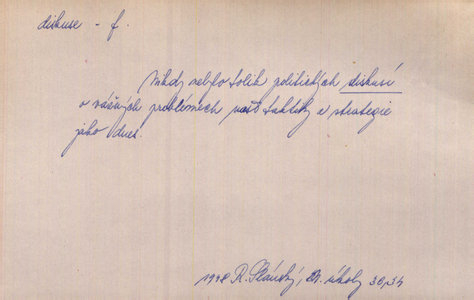 diskuse - f.
Nikdy nebylo tolik politických diskusí
o vážných problémech naší taktiky a strategie
jako dnes.
1948 R. Slánský, úkoly 30, 34